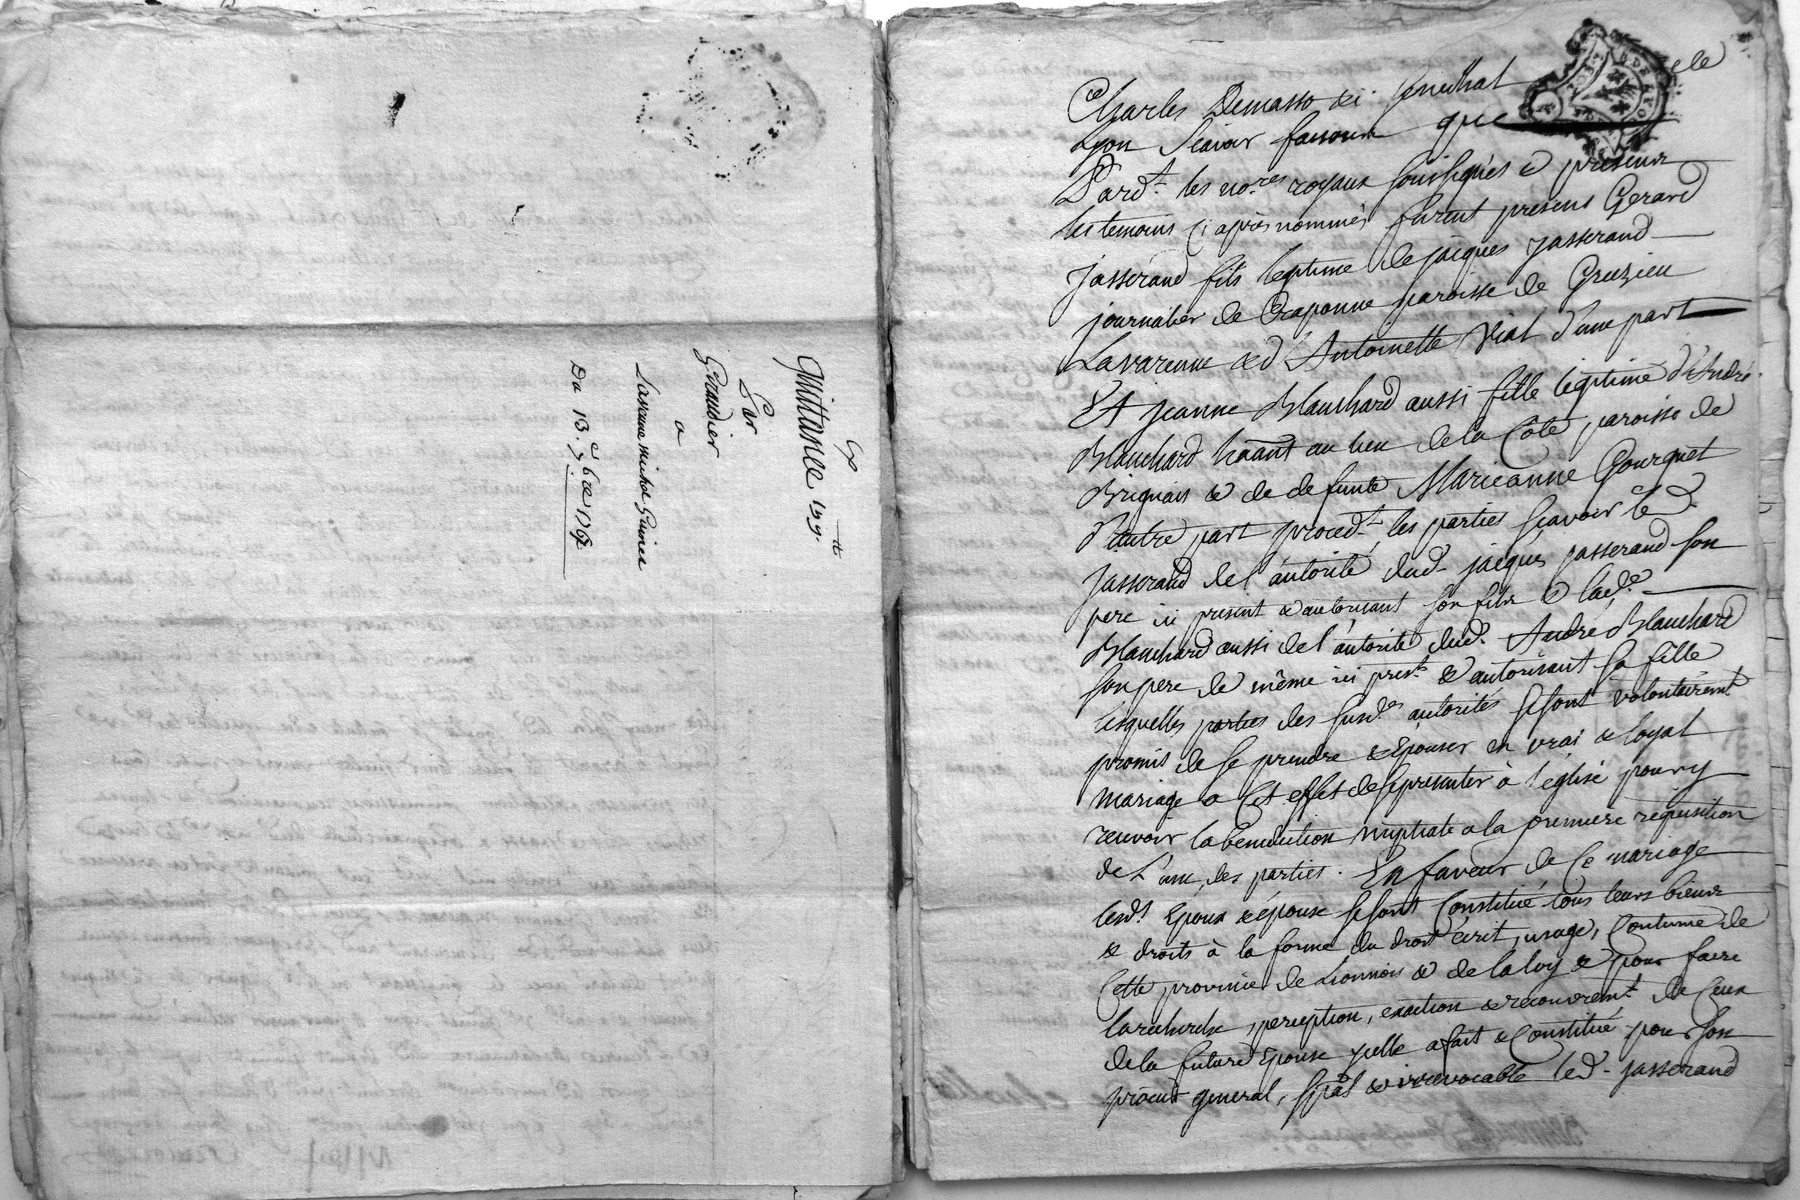 Quittance 199.tt
Par
Graudier
a
Du 13.e 7bre 1767
Charles Demasso &ci. Senechal de
Lyon Scavoir faisons que
Pard.t les no.res royaux soussignés & presens
les temoins ci après nommés furent presens Gerard
Jasserand fils legitime de jacques Jasserand
journalier de Craponne paroisse de Grezieu
Lavarenne & d'Antoinette Vial d'une part
Et jeanne Blanchard aussi fille legitime d'André
Blanchard hâant au lieu de la Côte paroisse de
Brignais & de defunte Marieanne Gourguet
d'autre part proced.t les parties scavoir led.
Jasserand de l'autorité dud. jacques Jasserand son
pere ici present & autorisant son fils & lad.e
Blanchard aussi de l'autorité dud. André Blanchard
son pere de même ici pres.t & autorisant sa fille
lesquelles parties des susd.es autorités se sont volontairem.t
promis de se prendre & Epouser en vrai & loyal
mariage a cet effet de se presenter à l'eglise pour y
recevoir la benediction nuptiale a la premiere requisition
de L'une des parties. En faveur de ce mariage
lesd.s Epoux & épouse se sont Constitué tous leurs biens
& droits à la forme du droit écrit, usage, Coutume de
Cette province de Lionnois & de la loy & pour faire
la recherche, perception, exaction & recouvrem.t de Ceux
de la future Epouse yelle a fait & Constitué pour son
procur general, spâl & irrevocable led. Jasserand